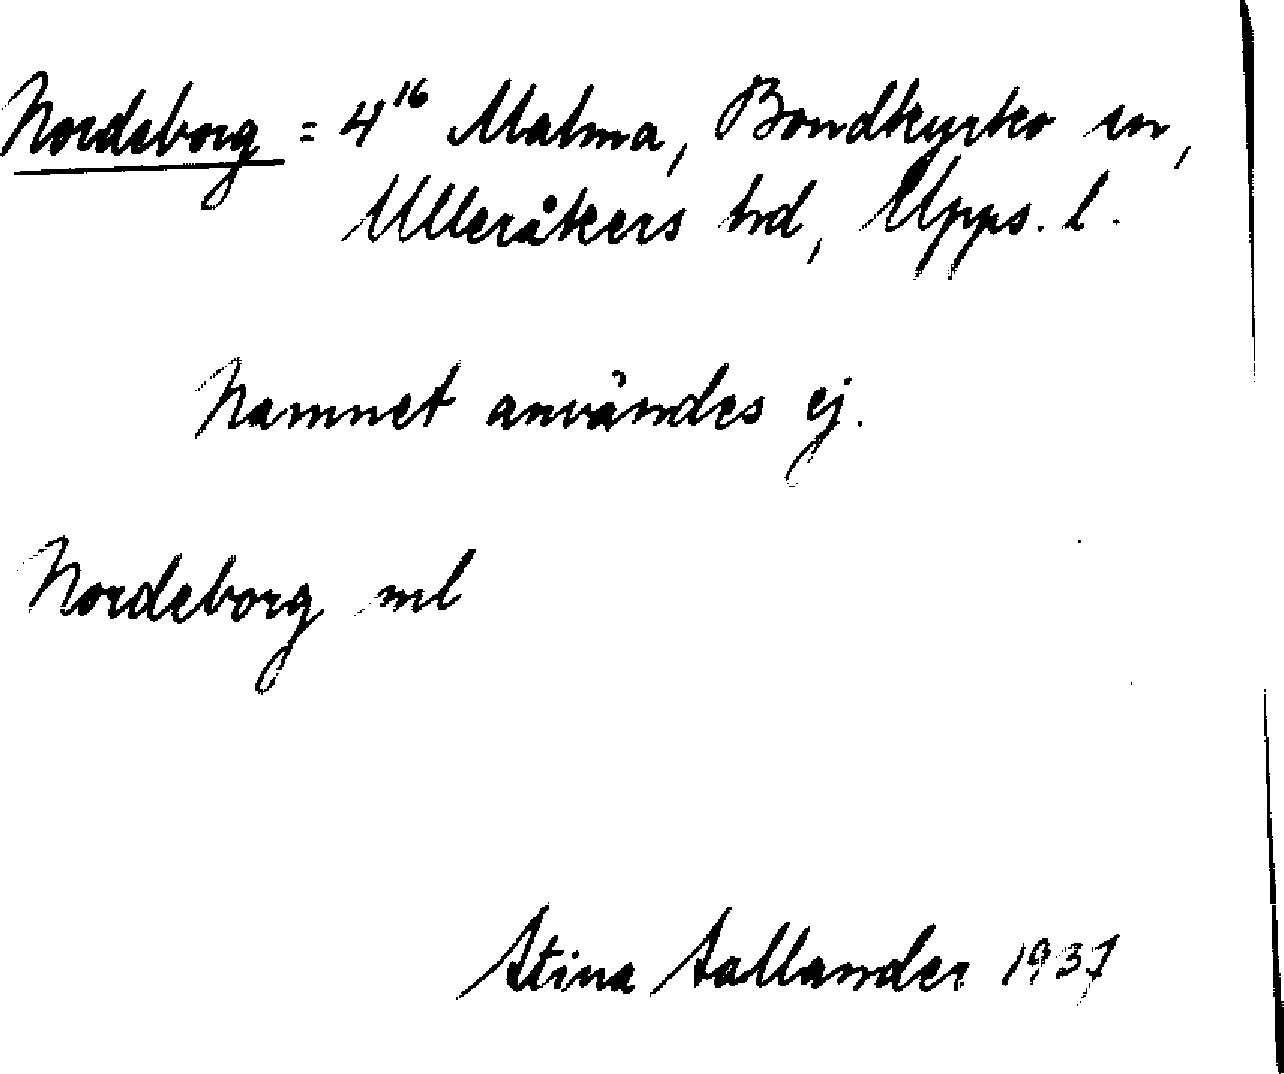 Nordeborg = 4¹⁶ Malma, Bondkyrko sn,
Ulleråkers hd, Upps. l.
Namnet användes ej.
Nordeborg ml
Stina Sallander 1937